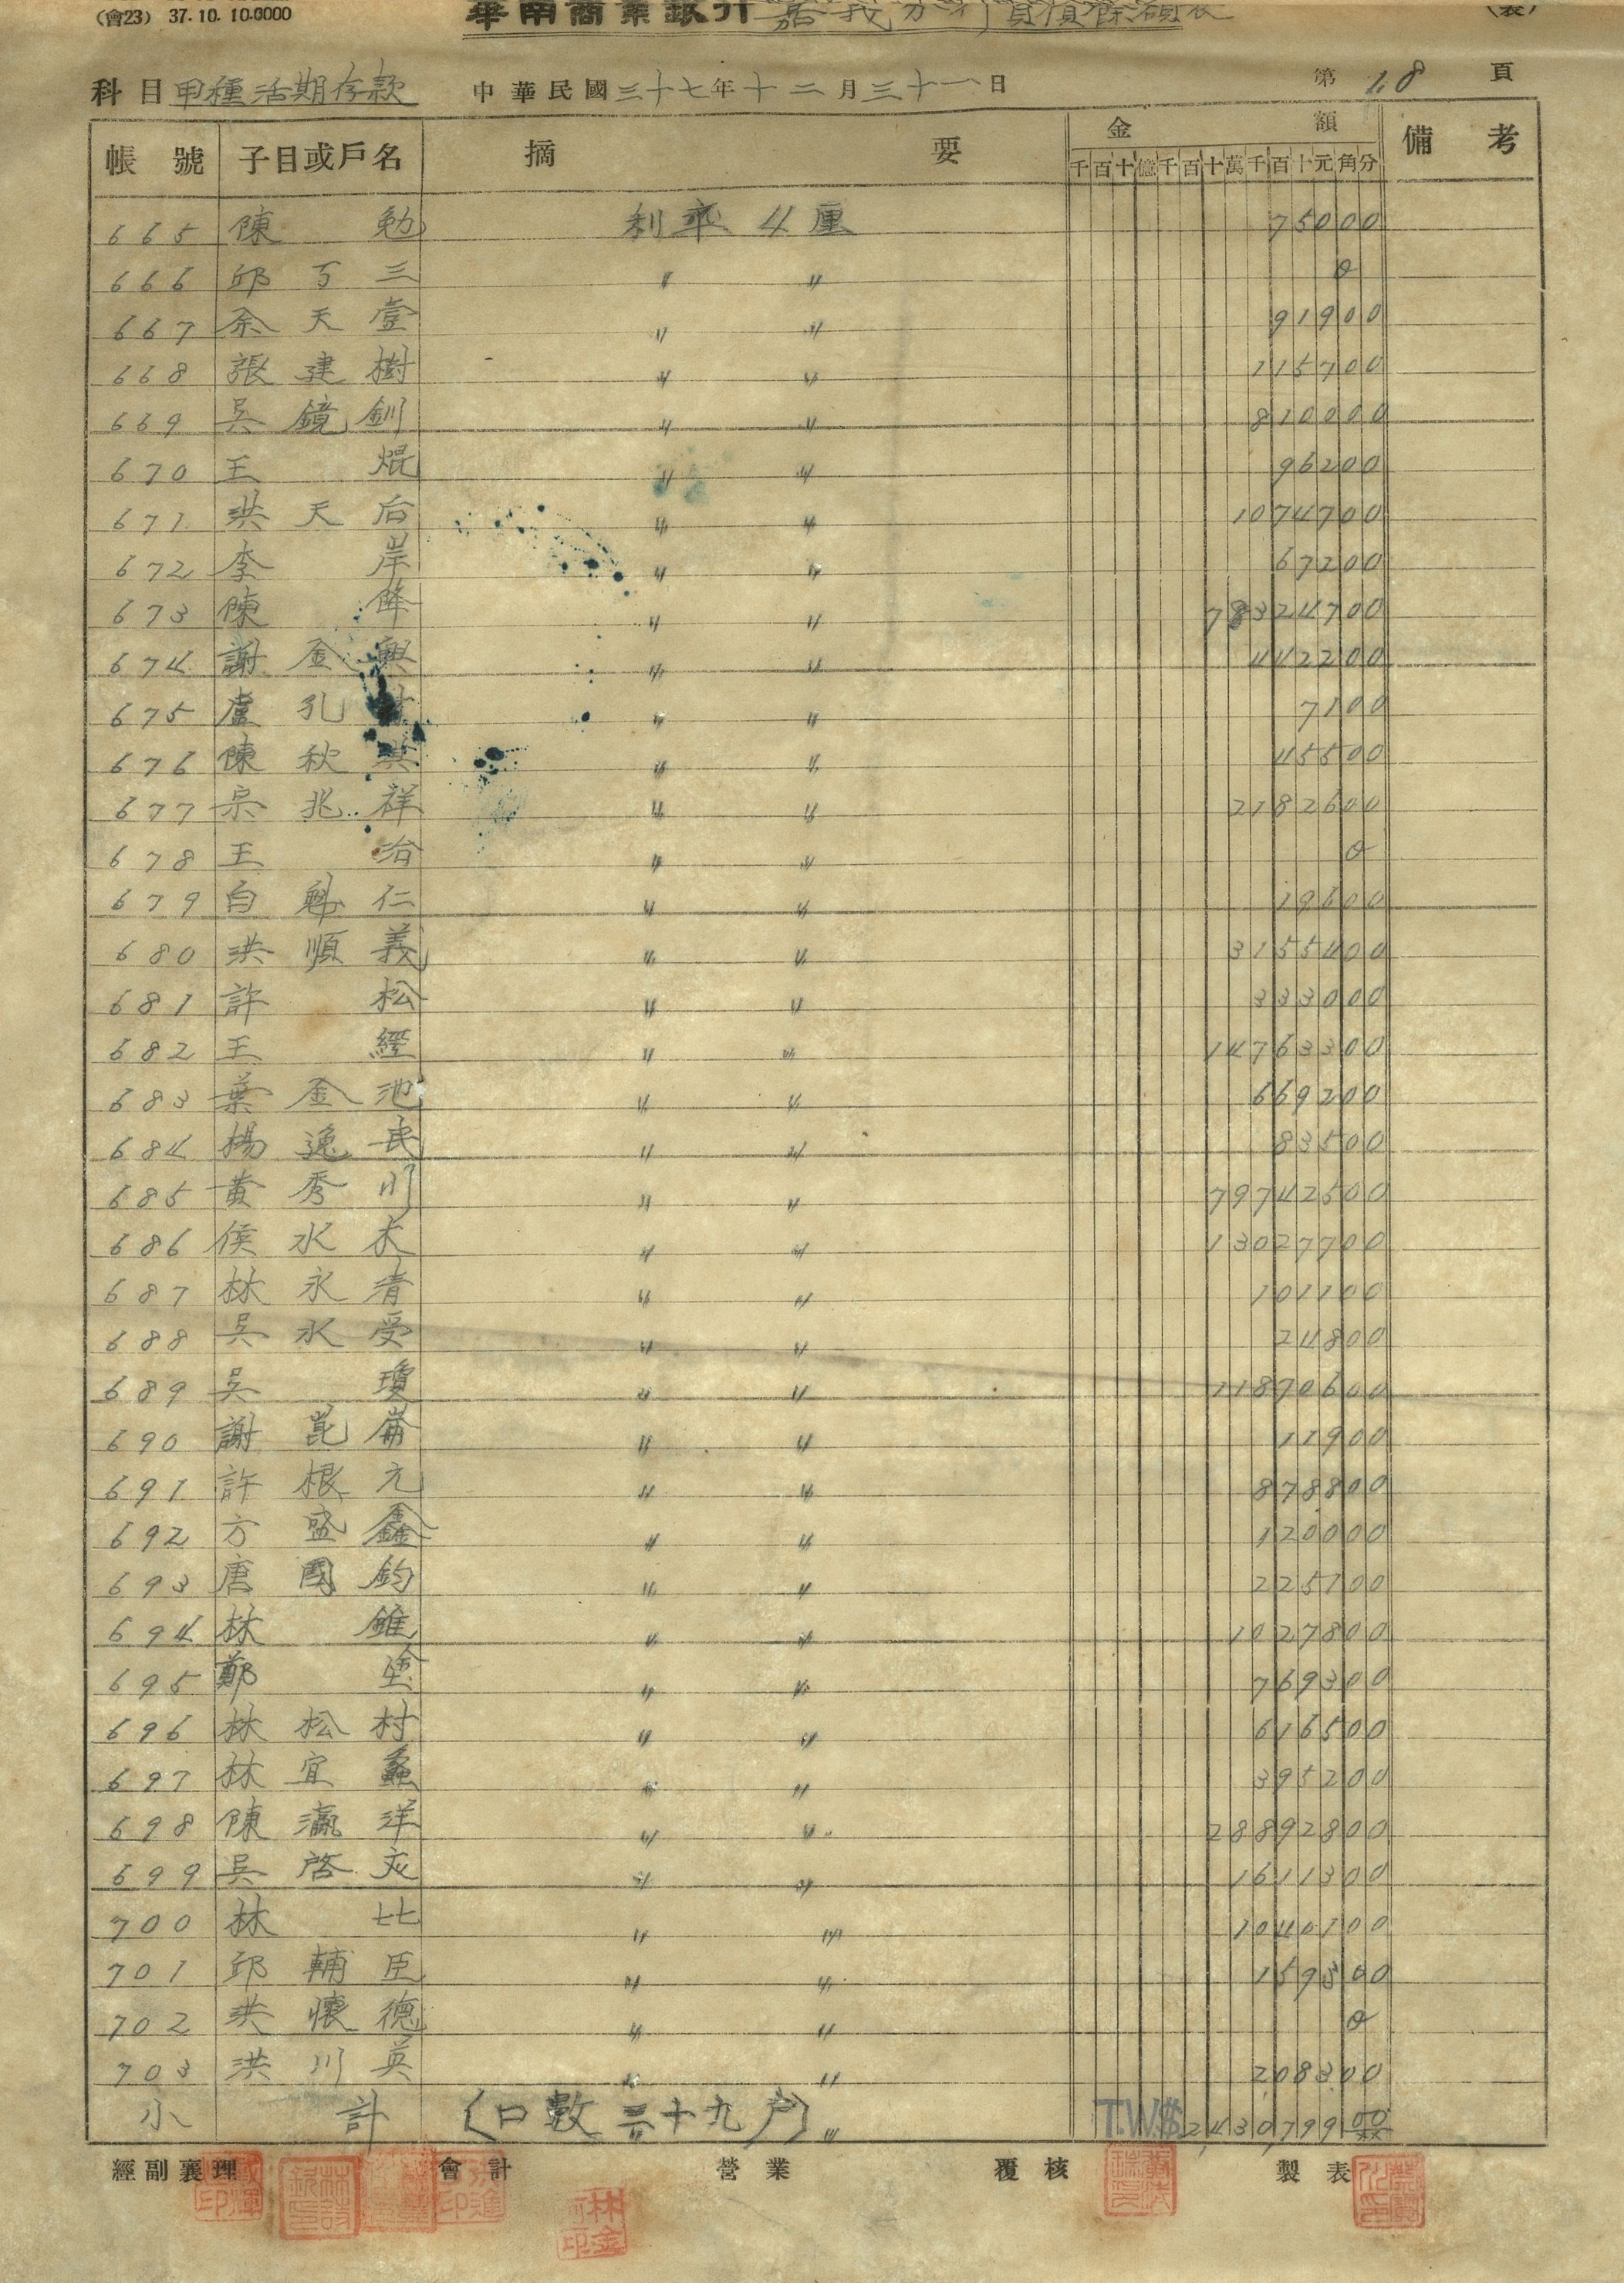 (會23) 37.10.10.0000
華南商業銀行嘉義分行負債餘額表 (表)
科目 甲種活期存款 中華民國三十七年十二月三十一日 第18頁
帳號 子目或戶名 摘要 金額 備考
千百十億千百十萬千百十元角分
665 陳勉 利率4厘 75000
666 邱百三 〃 〃 0
667 余天壹 〃 〃 91900
668 張建樹 〃 〃 115700
669 吳鏡釧 〃 〃 810000
670 王焜 〃 〃 96200
671 洪天后 〃 〃 1074700
672 李岸 〃 〃 67200
673 陳降 〃 〃 78324700
674 謝金興 〃 〃 442200
675 盧孔 〃 〃 7100
676 陳秋 〃 〃 45500
677 宗兆祥 〃 〃 2182600
678 王治 〃 〃 0
679 白 仁 〃 〃 19600
680 洪順義 〃 〃 3155400
681 許松 〃 〃 333000
682 王經 〃 〃 14763300
683 葉金池 〃 〃 669200
684 楊逸民 〃 〃 83500
685 黃秀川 〃 〃 79742500
686 侯水木 〃 〃 13027700
687 林永清 〃 〃 101100
688 吳水受 〃 〃 24800
689 吳瓊 〃 〃 11870600
690 謝崑崙 〃 〃 11900
691 許根元 〃 〃 878800
692 方盛鑫 〃 〃 120000
693 唐國鈞 〃 〃 225700
694 林錐 〃 〃 1027800
695 鄭塗 〃 〃 769300
696 林松村 〃 〃 616500
697 林宜蟊 〃 〃 395200
698 陳瀛洋 〃 〃 28892800
699 吳啓 〃 〃 1611300
700 林比 〃 〃 1040100
701 邱輔臣 〃 〃 159300
702 洪懷德 〃 〃 0
703 洪川英 〃 〃 208300
小計 〔口數三十九戶〕 〃 T.W$2,430,799 00
經副襄理 會計 營業 覆核 製表